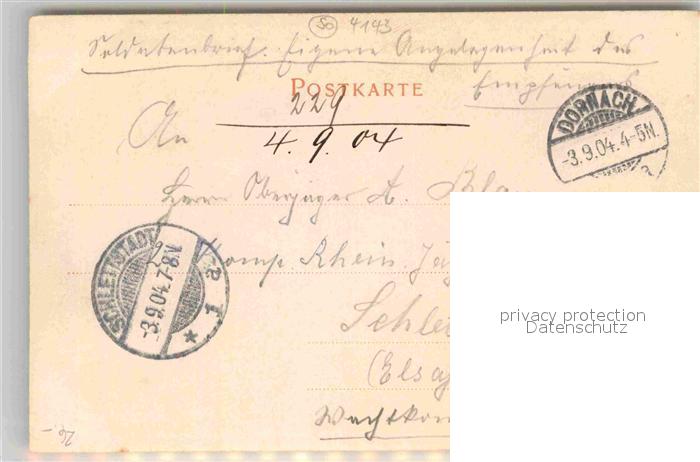 So 4143
Soldatenbrief. Eigene Angelegenheit des
Empfängers
POSTKARTE
229
4. 9. 04
An
DORNACH
-3.9.04.4-5N.
a
Herrn Oberjäger A.
Komp. Rhein. Jä
SCHLETTSTADT
-3.9.04.7-8.V.
* 1 a
Schle
(Elsa
Wachtkom
privacy protection
Datenschutz
26.-